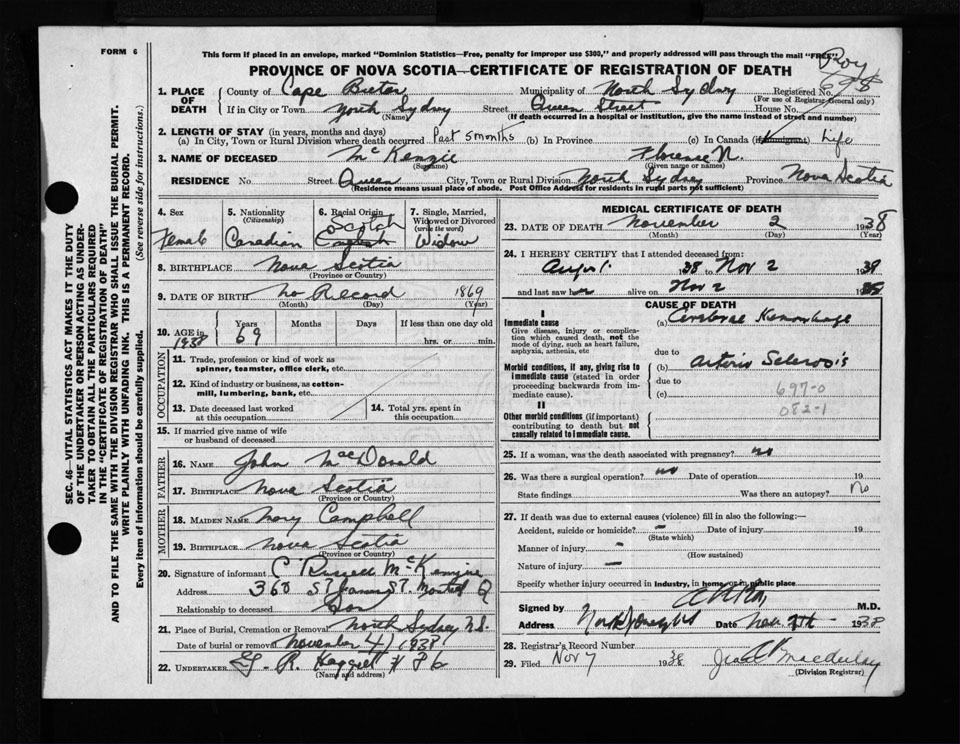 FORM 6
This form if placed in an envelope, marked "Dominion Statistics—Free, penalty for improper use $300," and properly addressed will pass through the mail "FREE"
PROVINCE OF NOVA SCOTIA—CERTIFICATE OF REGISTRATION OF DEATH
Roy
698
1. PLACE OF DEATH
County of Cape Breton Municipality of North Sydney Registered No.
(For use of Registrar General only)
If in City or Town North Sydney Street Queen Street House No.
(Name)
(If death occurred in a hospital or institution, give the name instead of street and number)
2. LENGTH OF STAY (in years, months and days)
(a) In City, Town or Rural Division where death occurred Past 5 months (b) In Province (c) In Canada (if immigrant) Life
3. NAME OF DECEASED McKenzie Florence N.
(Surname) (Given name or names)
RESIDENCE No. Street Queen City, Town or Rural Division North Sydney Province Nova Scotia
(Residence means usual place of abode. Post Office Address for residents in rural parts not sufficient)
4. Sex Female
5. Nationality (Citizenship) Canadian
6. Racial Origin Scotch English
7. Single, Married, Widowed or Divorced (write the word) Widow
8. BIRTHPLACE Nova Scotia
(Province or Country)
9. DATE OF BIRTH no Record 1869
(Month) (Day) (Year)
10. AGE in 1938
Years 69 Months Days If less than one day old
hrs. or min.
OCCUPATION
11. Trade, profession or kind of work as spinner, teamster, office clerk, etc.
12. Kind of industry or business, as cotton-mill, lumbering, bank, etc.
13. Date deceased last worked at this occupation
14. Total yrs. spent in this occupation
15. If married give name of wife or husband of deceased
FATHER
16. NAME John MacDonald
17. BIRTHPLACE Nova Scotia
(Province or Country)
MOTHER
18. MAIDEN NAME Mary Campbell
19. BIRTHPLACE Nova Scotia
(Province or Country)
20. Signature of informant C Russell McKenzie
Address 360 St James St. Montreal Q
Relationship to deceased Son
21. Place of Burial, Cremation or Removal North Sydney N.S.
Date of burial or removal November 4/1938
22. UNDERTAKER G. R.
(Name and address)
MEDICAL CERTIFICATE OF DEATH
23. DATE OF DEATH November 2 1938
(Month) (Day) (Year)
24. I HEREBY CERTIFY that I attended deceased from:
August 1938 to Nov 2 19
and last saw h alive on Nov 2 19
CAUSE OF DEATH
I
Immediate cause
Give disease, injury or complication which caused death, not the mode of dying, such as heart failure, asphyxia, asthenia, etc
(a) Cerebral Hemorrhage
due to
Morbid conditions, if any, giving rise to immediate cause (stated in order proceeding backwards from immediate cause).
(b) arterio Sclerosis
due to
(c)
697-0
082-1
II
Other morbid conditions (if important) contributing to death but not causally related to immediate cause.
25. If a woman, was the death associated with pregnancy? no
26. Was there a surgical operation? no Date of operation 19
State findings Was there an autopsy? No
27. If death was due to external causes (violence) fill in also the following:—
Accident, suicide or homicide? – Date of injury 19
(State which)
Manner of injury –
(How sustained)
Nature of injury —
Specify whether injury occurred in industry, in home, or in public place
Signed by M.D.
Address Date Nov 7th 1938
28. Registrar's Record Number
29. Filed Nov 7 1938
(Division Registrar)
SEC. 46—VITAL STATISTICS ACT MAKES IT THE DUTY
OF THE UNDERTAKER OR PERSON ACTING AS UNDER-
TAKER TO OBTAIN ALL THE PARTICULARS REQUIRED
IN THE "CERTIFICATE OF REGISTRATION OF DEATH"
AND TO FILE THE SAME WITH THE DIVISION REGISTRAR WHO SHALL ISSUE THE BURIAL PERMIT.
WRITE PLAINLY WITH UNFADING INK. THIS IS A PERMANENT RECORD.
Every item of information should be carefully supplied. (See reverse side for instructions.)